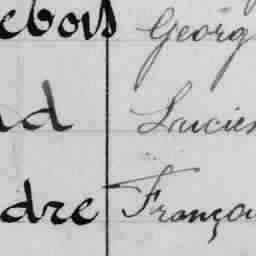 ebois Georg
nd Lucien
dre Françoi